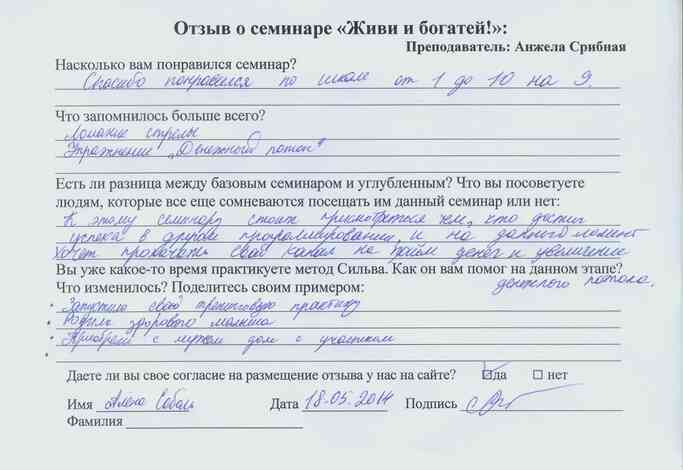 Отзыв о семинаре «Живи и богатей!»:
Преподаватель: Анжела Срибная
Насколько вам понравился семинар?
Спасибо понравился по школе от 1 до 10 на 9.
Что запомнилось больше всего?
Ломание стрелы
Упражнение „Денежного поток"
Есть ли разница между базовым семинаром и углубленным? Что вы посоветуете
людям, которые все еще сомневаются посещать им данный семинар или нет:
К этому семинару стоит присмотреться тем, кто достиг
успеха в другом программировании, и на данного момент
хочет прокачать свой канал на приём денег и увеличение
Вы уже какое-то время практикуете метод Сильва. Как он вам помог на данном этапе?
денежного потока.
Что изменилось? Поделитесь своим примером:
Запустила свою тренинговую практику
Родила здорового малыша
Приобрели с мужем дом с участком
Даете ли вы свое согласие на размещение отзыва у нас на сайте? да нет
Имя Алена Соболь Дата 18.05.2014 Подпись
Фамилия